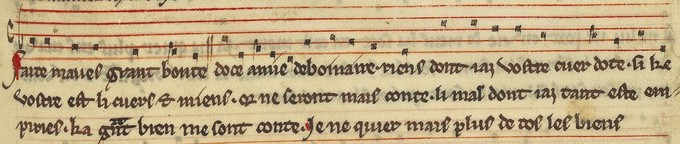 Faite maves grant bonte doce amie debonaire · riens dont iai vostre cuer dote · si ke
vostre est li cuers & miens · or ne seront mais conte · li mal dont iai tant este em
piries · ka gnt bien me sont conte · Je ne quier mais plus de tos les biens